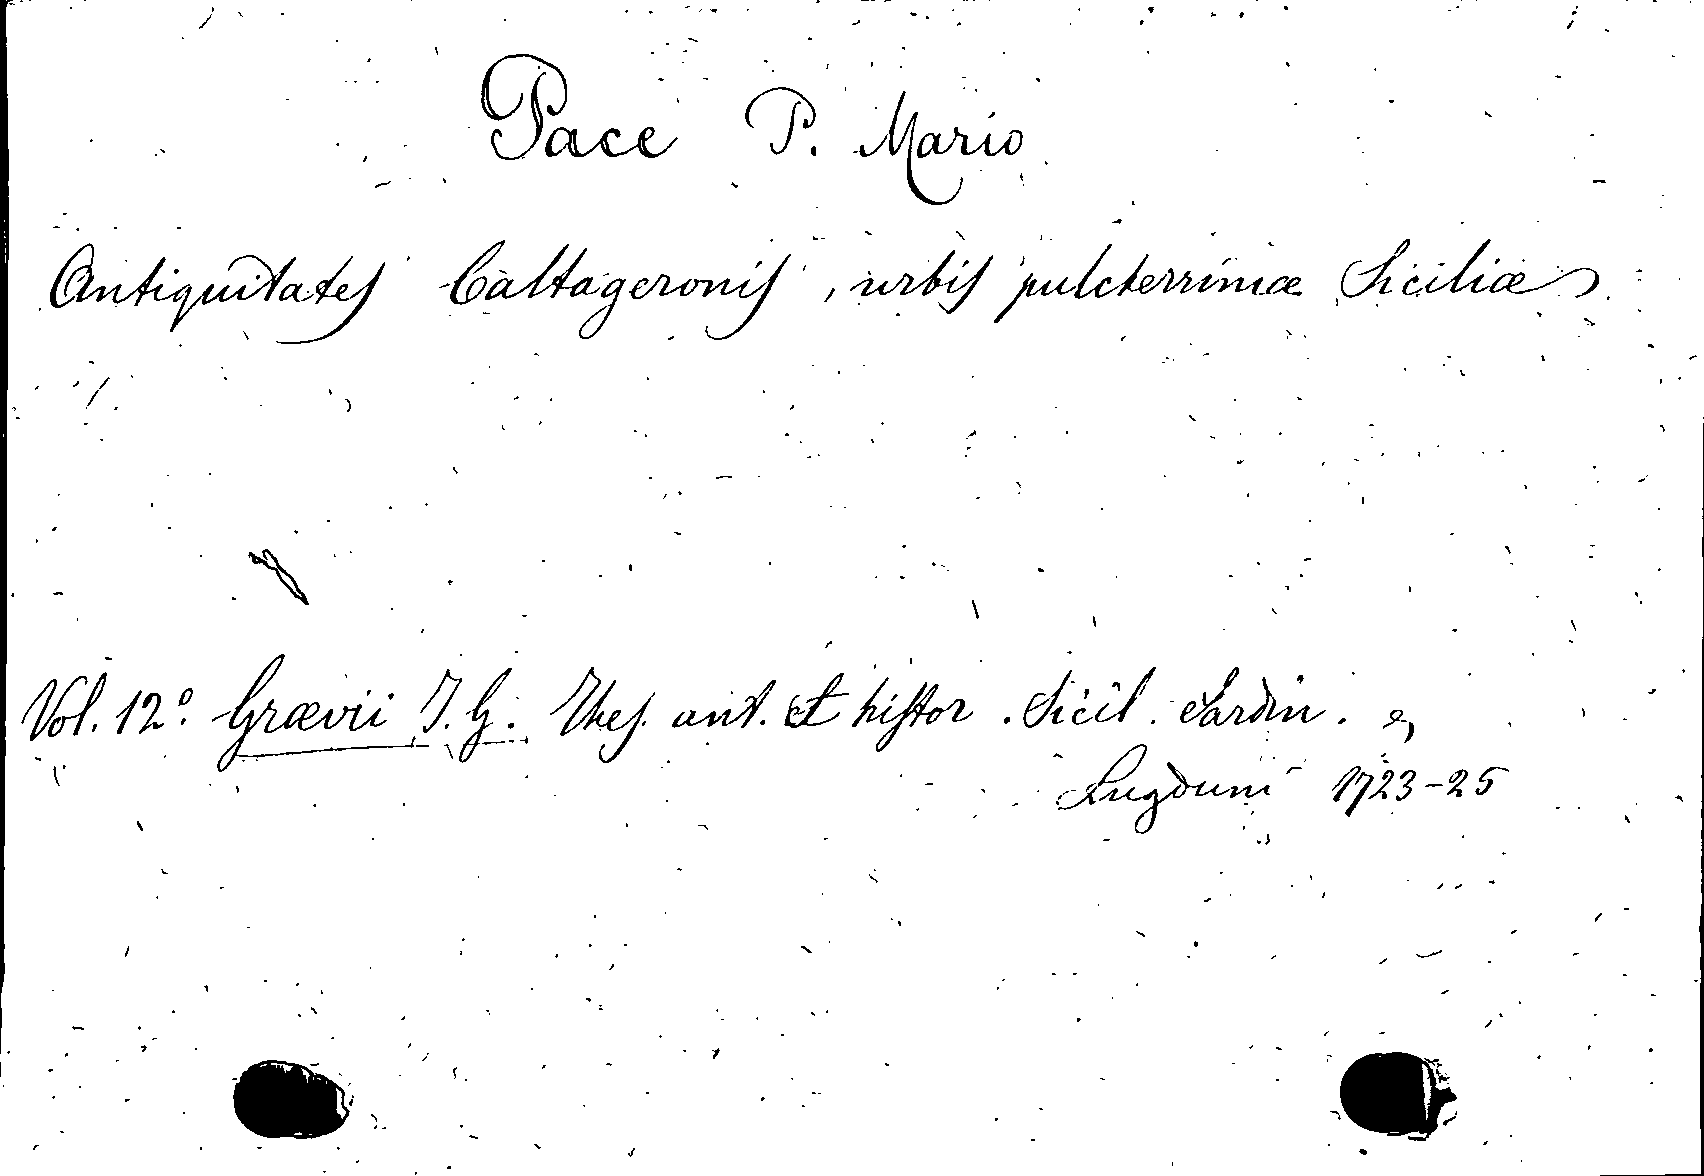 Pace P. Mario
Antiquitates Caltageronis, urbis pulcterrimæ Siciliæ
Vol. 12º. Grævii J. G. Thes. ant. et histor. Sicil. Sardin.
Lugduni 1723-25